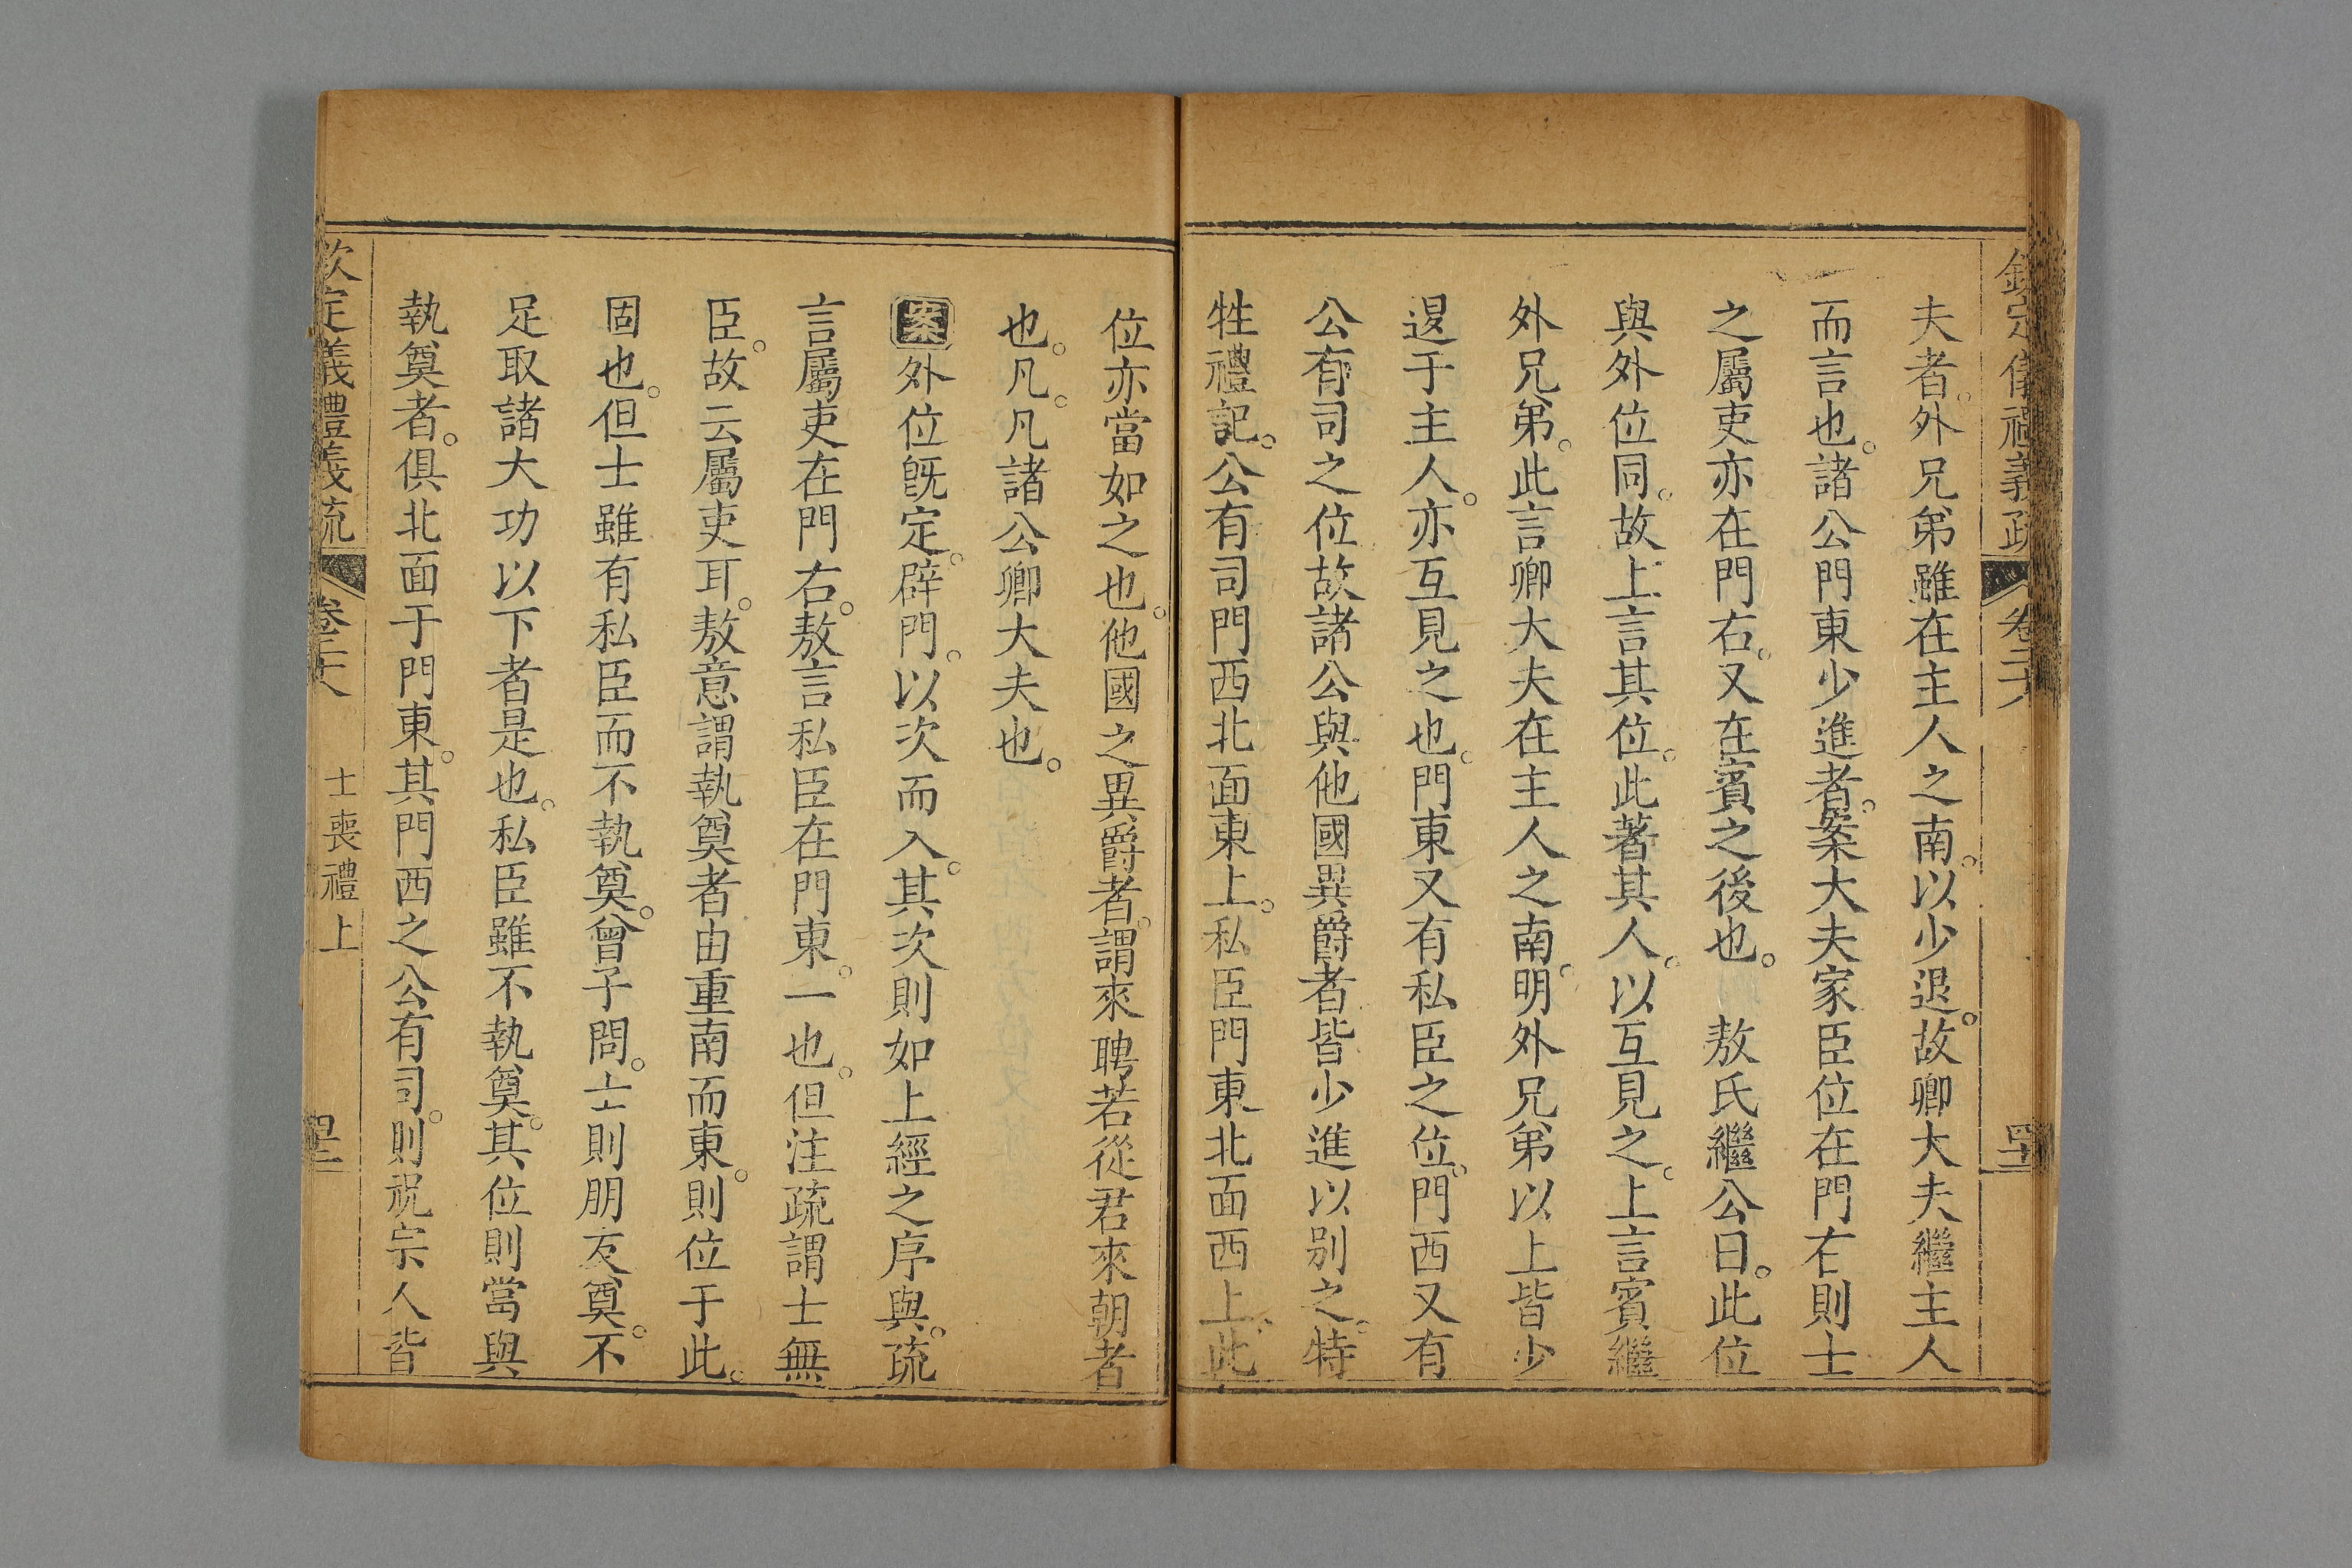 欽定儀禮義疏 卷二十八
夫者。外兄弟雖在主人之南。以少退。故卿大夫繼主人
而言也。諸公門東少進者。案大夫家臣位在門右則士
之屬吏亦在門右。又在賓之後也。 敖氏繼公曰。此位
與外位同。故上言其位。此著其人。以互見之。上言賓繼
外兄弟。此言卿大夫在主人之南。明外兄弟以上皆少
退于主人。亦互見之也。門東又有私臣之位。門西又有
公有司之位故諸公與他國異爵者皆少進以別之。特
牲禮記。公有司門西北面東上。私臣門東北面西上。此
位亦當如之也。他國之異爵者。謂來聘若從君來朝者
也。凡。凡諸公卿大夫也。
案外位旣定。辟門。以次而入。其次則如上經之序與。疏
言屬吏在門右。敖言私臣在門東。一也。但注疏謂士無
臣。故云屬吏耳。敖意謂執奠者由重南而東。則位于此。
固也。但士雖有私臣而不執奠。曾子問。士則朋友奠。不
足取諸大功以下者是也。私臣雖不執奠。其位則當與
執奠者。俱北面于門東。其門西之公有司。則祝宗人皆
欽定儀禮義疏 卷二十八 士喪禮上